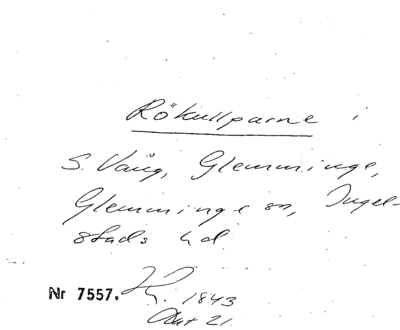 Rökullparne i
S. Vång, Glemminge,
Glemminge sn, Ingel-
stads hd.
Nr 7557. 1843